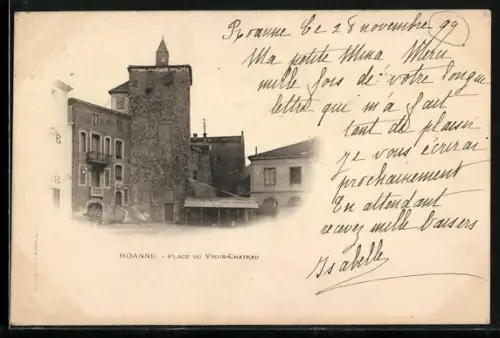 Roanne le 28 novembre 99
Ma petite Mina Merci
mille fois de votre longue
lettre qui m'a fait
tant de plaisir
je vous écrirai
prochainement
En attendant
recevez mille baisers
Isabelle
ROANNE - PLACE DU VIEUX-CHATEAU